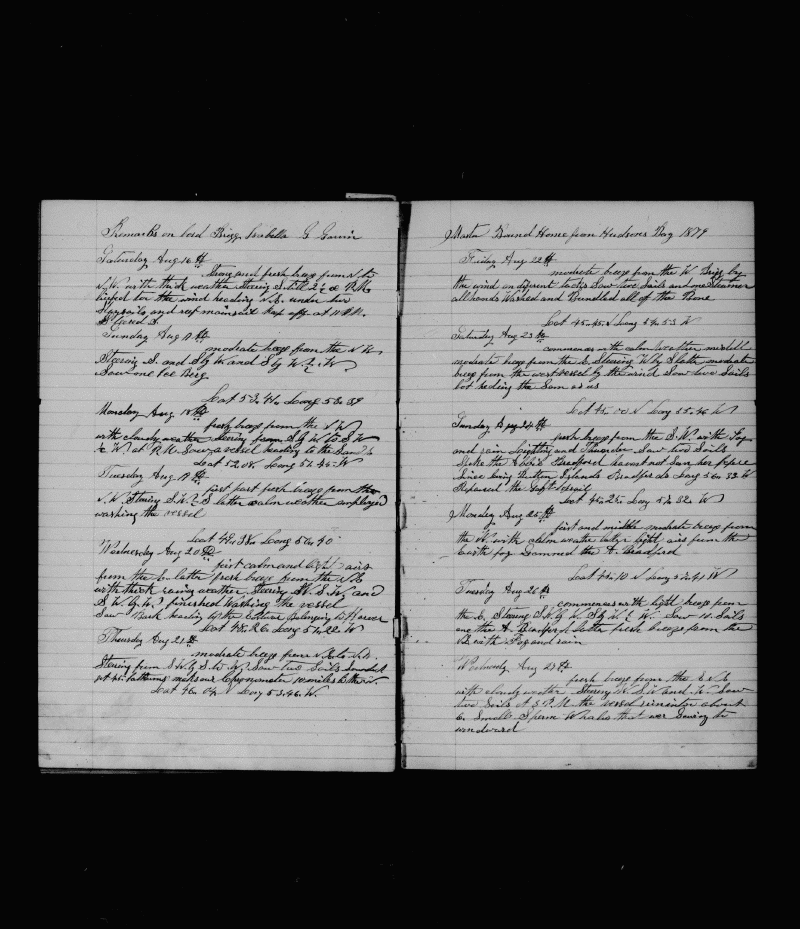 Remarks on bord Brigg Isabella G Garvin
Saturday Aug 16th
Strong and fresh breeze from N to
N.W. with thick weather Stering S. till 2 P.M.
luffed too the wind heading N.E. under
Staysails and reef mainsail kep off at 11 P.M.
Sunday Aug 17th
modrate breeze from the N W
Stering S. and S by W and S by W 1/2 W
Saw one Ice Berg
Lat 53.41 Long 53.39
Monday Aug 18th
fresh breeze from the N W
with cloudy weather Stering from S by W to S W
& W at P.M. Saw a vessel heading to the
Lat 52.08 Long 51.45 W
Tuesday Aug 19th
first part fresh breeze from the
N.W. Stering S. latter calm weather employed
washing the vessel
Lat 48.38 Long 50.40
Wednesday Aug 20th
first calm and light airs
from the latter fresh breeze from the N E
with thick rainy weather Stering W. S. W. and
S W by W finished Washing the vessel
Saw Bark heading to the Estward Belonging to
Lat 48. Long 51.22 W
Thursday Aug 21st
modrate breeze from N.E. to N.
Stering from S W by S to W. Saw two Sails Sounded
at 45 fathoms makes our Chronometer 10 miles to the
Lat 46 04 N Long 53.46 W.
Marta Bound Home from Hudsons Bay 1879
Friday Aug 22th
modrate breeze from the W. Brigg by
the wind on diferent tacks Saw two Sails and one Steamer
all hands Washed and Bundled all of the Bone
Lat 45.45 N Long 54.53 W
Saturday Aug 23th
commences with calm weather middle
modrate breeze from the E. Stering W by S latter modrate
breeze from the west vessel by the wind Saw two Sails
bot heding the Sam as us
Lat 45.00 N Long 55.46 W
Sunday Aug 24th
fresh breeze from the S.W. with Fog
and rain Lighting and Thunder Saw two Sails
Spoke the Abbie Bradford havent not Seen her before
Since being Button Islands Bradfords Long 56.32 W
Repaired the topsail
Lat 45.25 Long 57.32 W
Monday Aug 25th
first and middle modrate breeze from
the W. with calm weather latter light airs from the
Earth fog Gammed the A. Bradford
Lat 44.10 N Long 57.41 W
Tuesday Aug 26th
commences with light breeze from
the E. Stering S.W. by W. Saw 10 Sails
one the A. Bradford latter fresh breeze from the
N E with Fog and rain
Wednesday Aug 27th
fresh breeze from the E N E
with cloudy weather Stering W. S. W. and W. Saw
two Sails at 5 P.M. the vessel runing in about
6 Small Sperm Whales that wer Going to
windward